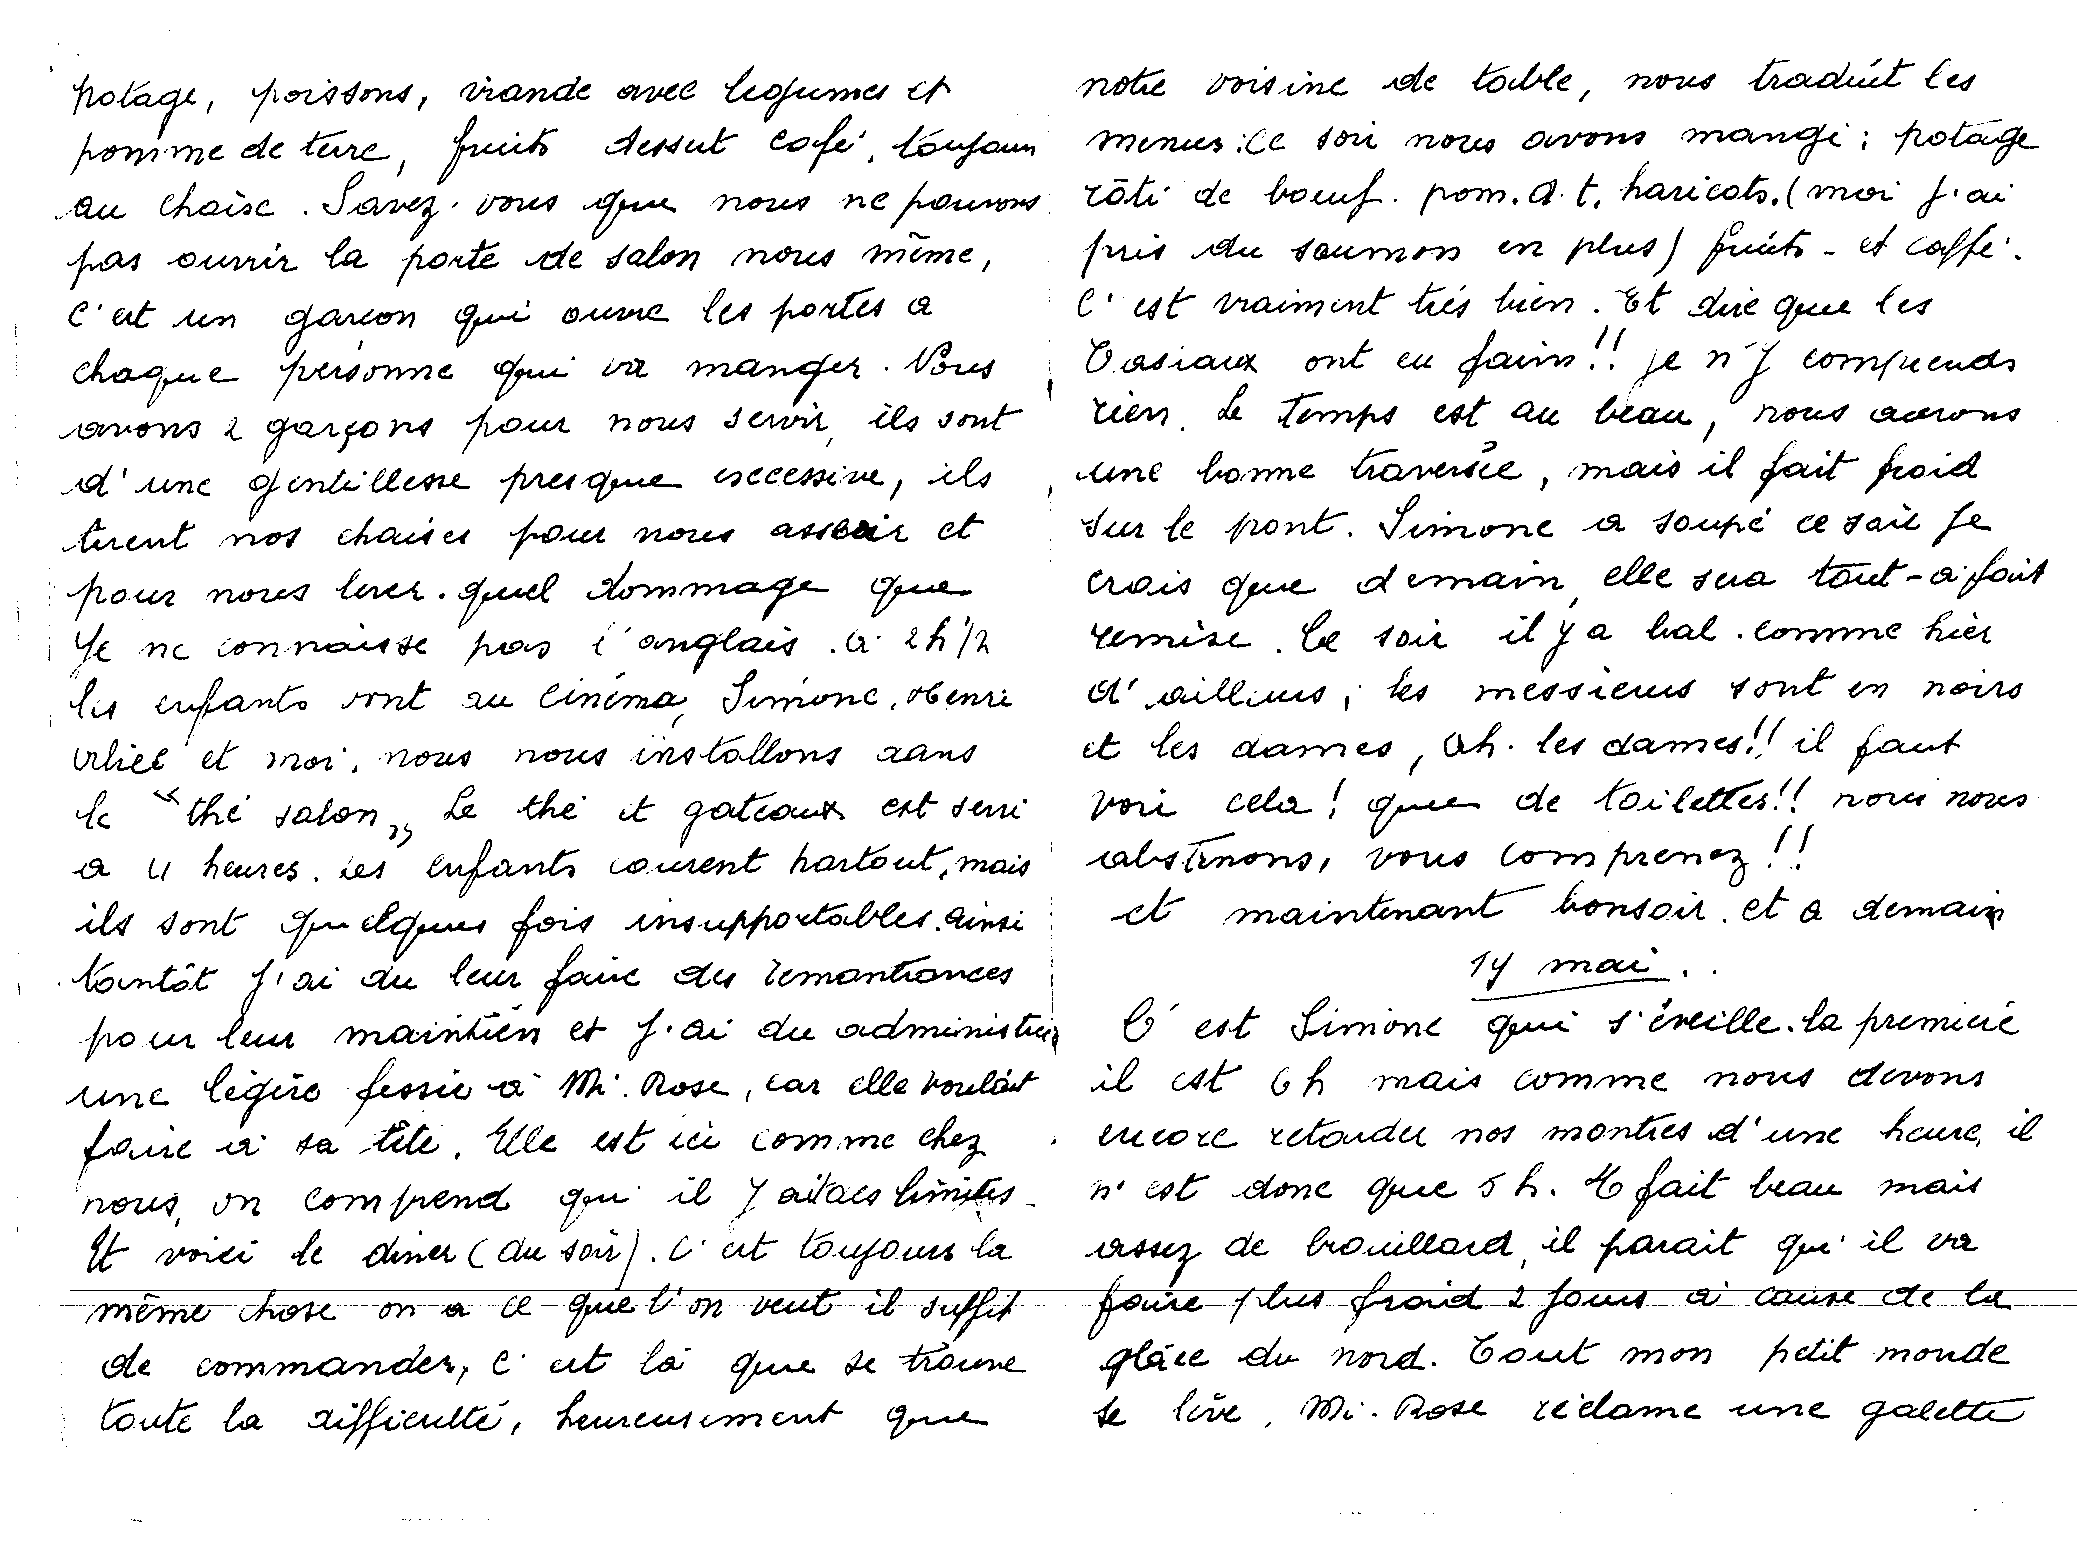 potage, poissons, viande avec legumes et
pomme de terre, fruits dessert café, toujours
au choise. Savez-vous que nous ne pouvons
pas ouvrir la porte de salon nous même,
c'est un garcon qui ouvre les portes a
chaque personne qui va manger. Nous
avons 2 garçons pour nous servir, ils sont
d'une gentillesse presque excessive, ils
tirent nos chaises pour nous asseoir et
pour nous lever. quel dommage que
Je ne connaisse pas l'anglais. à 2h1/2
les enfants vont au cinéma, Simone, Henri
et moi, nous nous installons dans
le "thé salon" Le thé et gateaux est servi
a 4 heures. Les enfants courent partout, mais
ils sont quelques fois insupportables. ainsi
tantôt j'ai du leur faire des remontrances
pour leur maintien et j'ai du administrer
une légère fessée à Mi. Rose, car elle voulait
faire à sa tête. Elle est ici comme chez
nous, on comprend qu'il y ait des limites.
Et voici le diner (du soir). C'est toujours la
même chose on a ce que l'on veut il suffit
de commander, c'est là que se trouve
toute la difficulté, heureusement que
notre voisine de table, nous traduit les
menus: ce soir nous avons mangé: potage
rôti de boeuf. pom. d. t. haricots. (moi j'ai
pris du saumon en plus) fruits - et caffé.
C'est vraiment trés bien. Et dire que les
Tasiaux ont eu faim!! je n'y comprends
rien. Le temps est au beau, nous aurons
une bonne traversée, mais il fait froid
sur le pont. Simone a soupé ce soir je
crois que demain, elle sera tout-à-fait
remise. Ce soir il y a bal. comme hier
d'ailleurs; les messieurs sont en noirs
et les dames, Oh. les dames!! il faut
voir cela! que de toilettes!! nous nous
abstenons, vous comprenez!!
et maintenant bonsoir. et a demain
17 mai..
C'est Simone qui s'éveille. la premiere
il est 6h mais comme nous devons
encore retarder nos montres d'une heure, il
n'est donc que 5 h. Il fait beau mais
assez de brouillard, il parait qu'il va
faire plus froid 2 jours à cause de la
glâce du nord. Tout mon petit monde
se lève, Mi. Rose réclame une galette